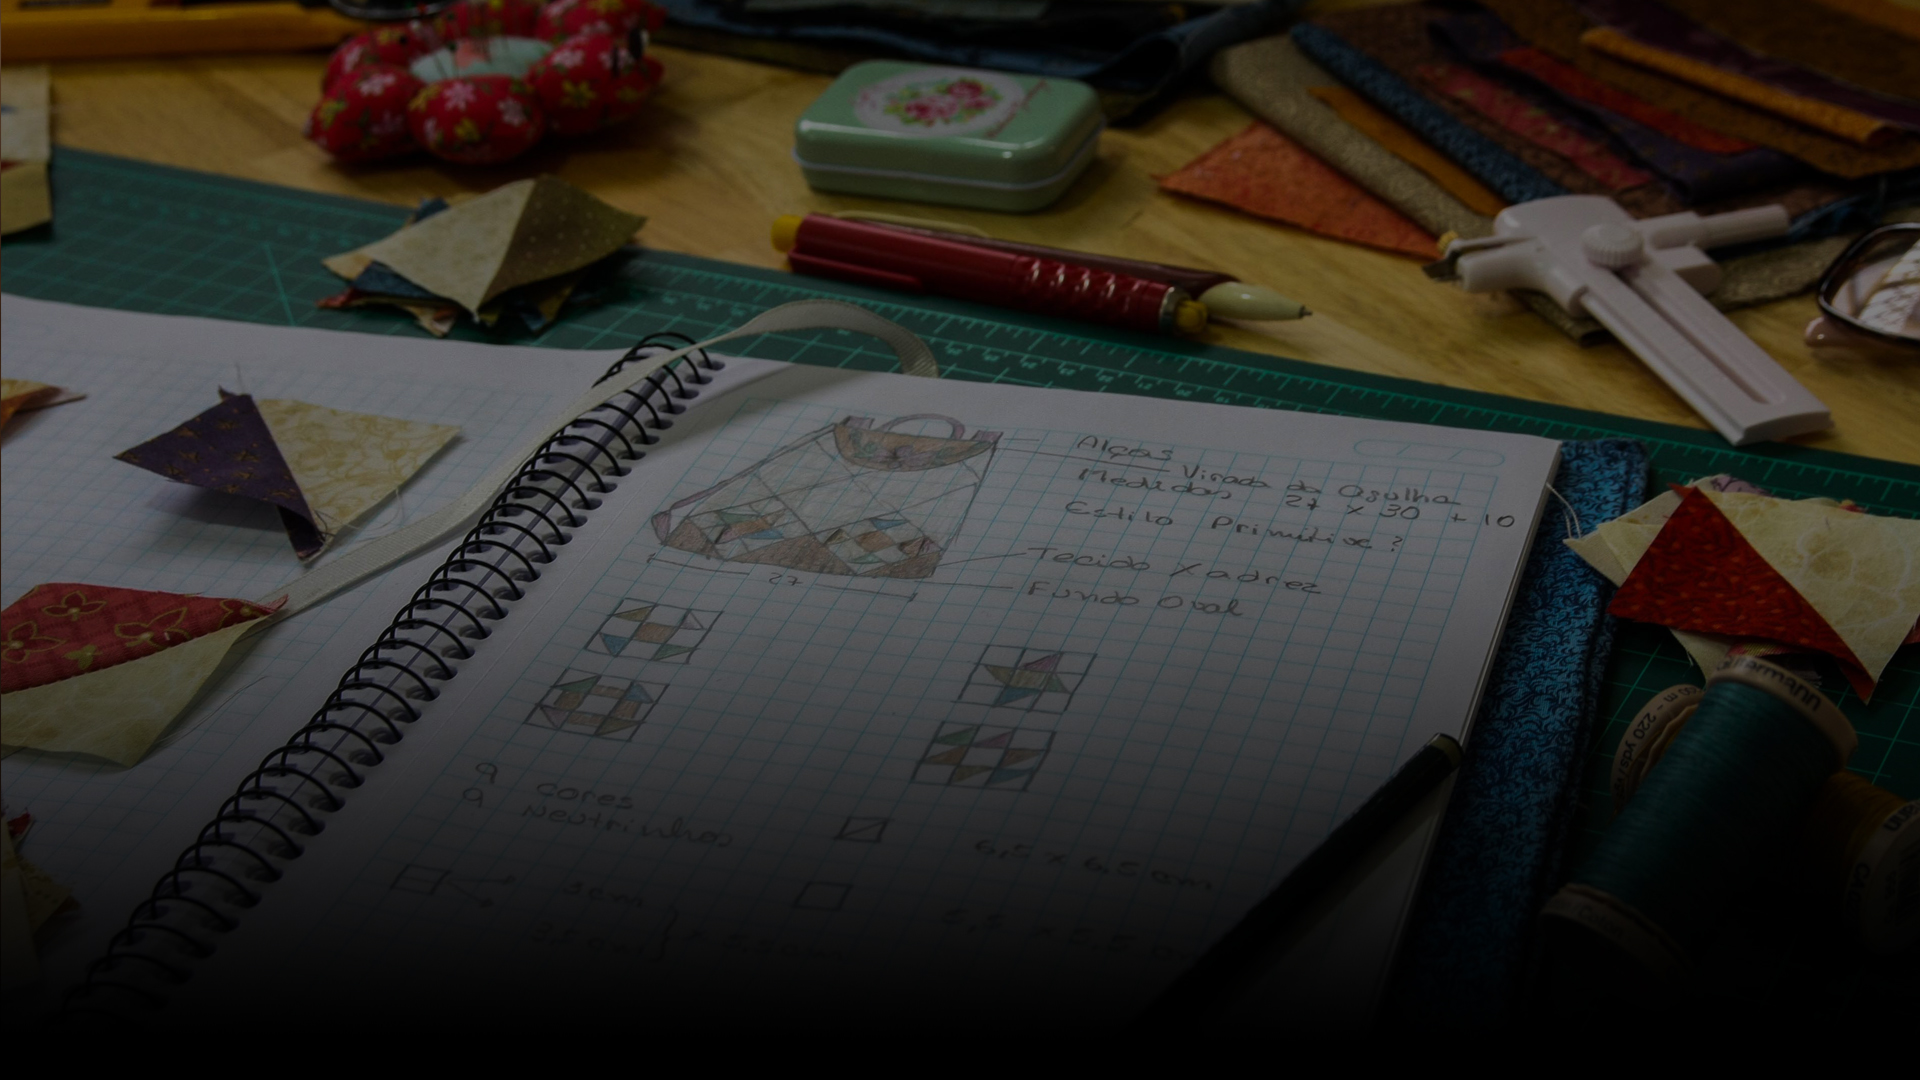 Alças
Virada da Agulha
Medidas 27 x 30 + 10
Estilo Primitive?
Tecido Xadrez
Fundo Oval
27
9 cores
9 Neutrinhos
6,5 x 6,5 cm
3cm
3,5cm
5,5 x 5,5
220 yds